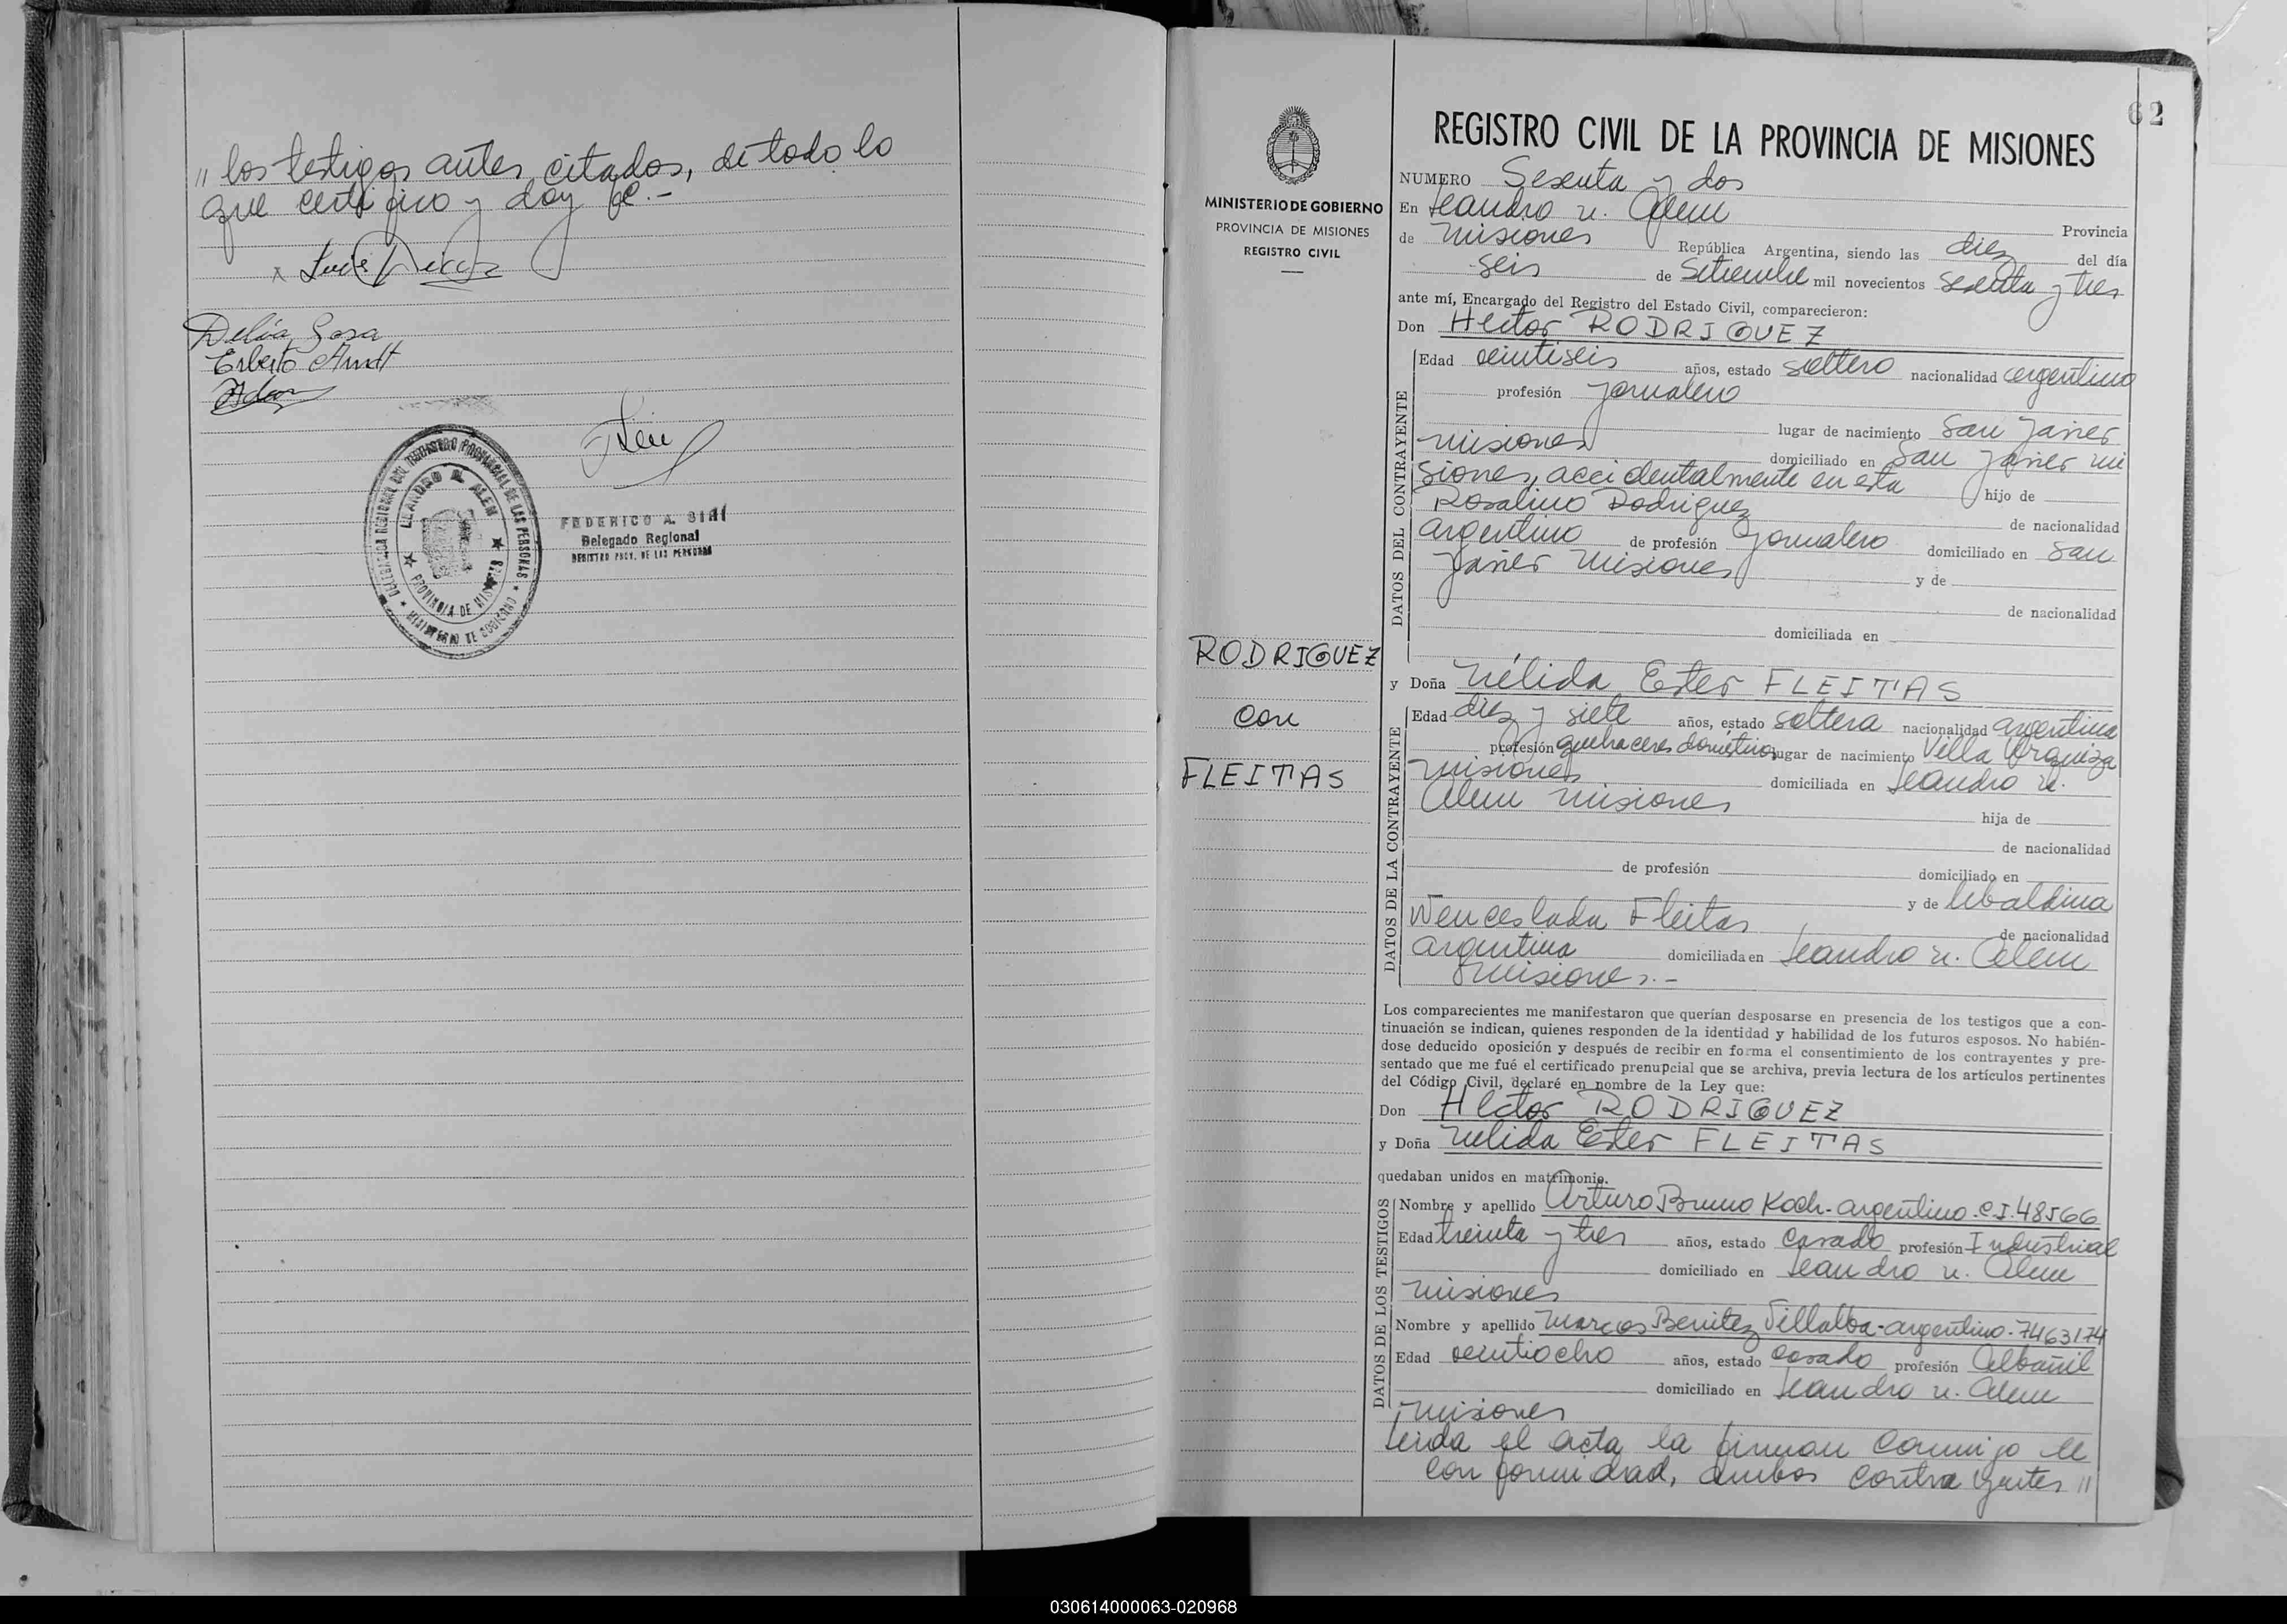 " los testigos antes citados, de todo lo
que certifico y doy fe.-
Delia Sosa
Erberto Arndt
DELEGACION REGIONAL DEL REGISTRO PROVINCIAL DE LAS PERSONAS
LEANDRO N. ALEM
PROVINCIA DE MISIONES
MINISTERIO DE GOBIERNO
FEDERICO A. SIRI
Delegado Regional
REGISTRO PROV. DE LAS PERSONAS
62
MINISTERIO DE GOBIERNO
PROVINCIA DE MISIONES
REGISTRO CIVIL
RODRIGUEZ
con
FLEITAS
REGISTRO CIVIL DE LA PROVINCIA DE MISIONES
NUMERO Sesenta y dos
En Leandro N. Alem Provincia
de Misiones República Argentina, siendo las diez del día
seis de Setiembre mil novecientos sesenta y tres
ante mí, Encargado del Registro del Estado Civil, comparecieron:
Don Hector RODRIGUEZ
DATOS DEL CONTRAYENTE
Edad veintiseis años, estado soltero nacionalidad argentino
profesión Jornalero
lugar de nacimiento San Javier
Misiones domiciliado en San Javier Mi
siones, accidentalmente en esta hijo de
Rosalino Rodriguez de nacionalidad
argentino de profesión Jornalero domiciliado en San
Javier Misiones y de
de nacionalidad
domiciliada en
y Doña Nélida Ester FLEITAS
DATOS DE LA CONTRAYENTE
Edad diez y siete años, estado soltera nacionalidad argentina
profesión quehaceres domésticos lugar de nacimiento Villa Urquiza
Misiones domiciliada en Leandro N.
Alem Misiones hija de
de nacionalidad
de profesión domiciliado en
y de Ubaldina
Wenceslada Fleitas de nacionalidad
argentina domiciliada en Leandro N. Alem
Misiones.-
Los comparecientes me manifestaron que querían desposarse en presencia de los testigos que a con-
tinuación se indican, quienes responden de la identidad y habilidad de los futuros esposos. No habién-
dose deducido oposición y después de recibir en forma el consentimiento de los contrayentes y pre-
sentado que me fué el certificado prenupcial que se archiva, previa lectura de los artículos pertinentes
del Código Civil, declaré en nombre de la Ley que:
Don Hector RODRIGUEZ
y Doña Nelida Ester FLEITAS
quedaban unidos en matrimonio.
DATOS DE LOS TESTIGOS
Nombre y apellido Arturo Bruno Koch-argentino.C.I.48566
Edad treinta y tres años, estado casado profesión Industrial
domiciliado en Leandro N. Alem
Misiones
Nombre y apellido Marcos Benitez Villalba-argentino-7463174
Edad veintiocho años, estado casado profesión Albañil
domiciliado en Leandro N. Alem
Misiones
Leida el acta la firman conmigo de
conformidad, ambos contrayentes "
030614000063-020968